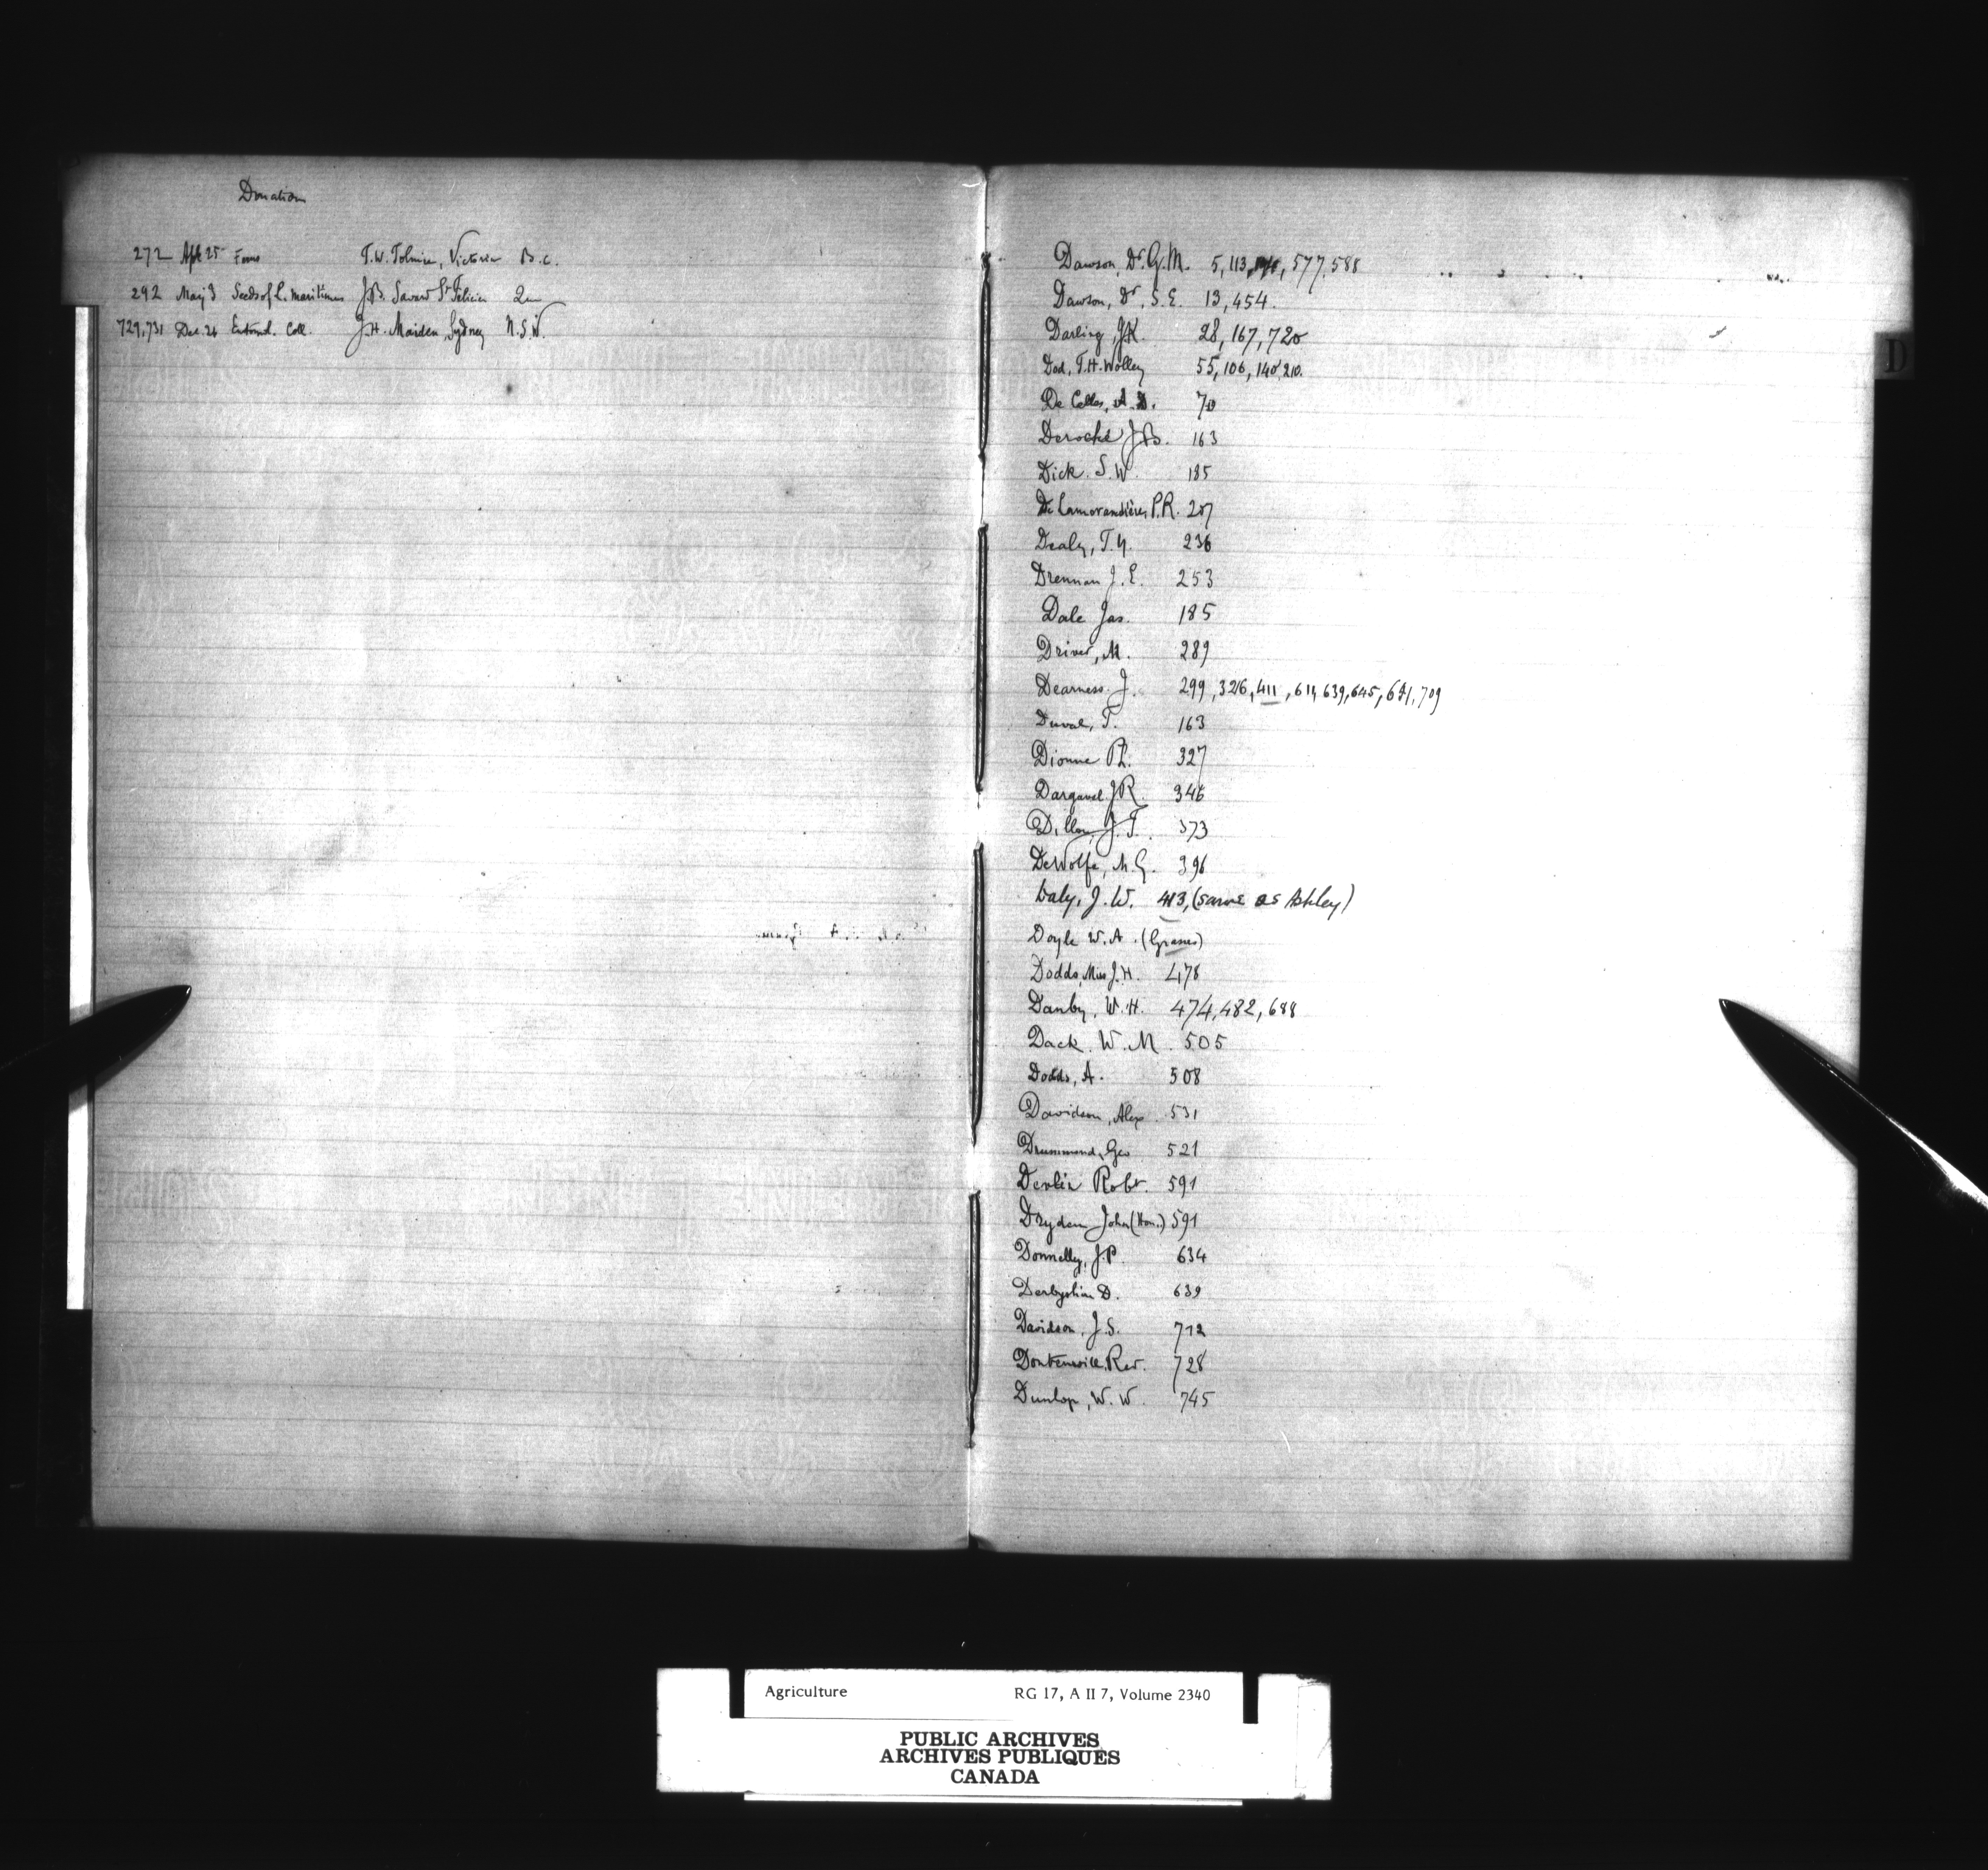 Donation
272 Apl 25 Ferns T.W. Tolmie, Victoria B.C.
292 May 3 Seeds of L. maritimus J.B. Savard St Felicien Que
729,731 Dec. 24 Entomol. Coll. J.H. Maiden, Sydney N.S.W.
Dawson, Dr. G.M. 5, 113, 577, 588
Dawson, Dr. S.E. 13, 454.
Darling, J.K. 28, 167, 720
Dod, T.H. Wolley 55, 106, 140, 210.
De Celles, A.D. 70
Deroche J.B. 163
Dick. S.W. 185
De Lamorandière, P.R. 207
Dealy, T.Y. 236
Drennan J.E. 253
Dale Jas. 185
Driver, M. 289
Dearness. J. 299, 326, 411, 611, 639, 645, 691, 709
Duval, T. 163
Dionne 327
Dargavel J.R. 346
Dillon, J.T. 373
DeWolfe, M.G. 396
Daly, J.W. 413, (same as Ashley)
Doyle W.A. (Grasses)
Dodds, Miss J.H. 478
Danby, W.H. 474, 482, 688
Dack. W.M. 505
Dodds, A. 508
Davidson, Alex. 531
Drummond, Geo 521
Devlin Robt. 591
Dryden John (Hon.) 591
Donnelly, J.P. 634
Derbyshire D. 639
Davidson, J.S. 712
Dontenwill, Rev. 728
Dunlop, W.W. 745
D
Agriculture RG 17, A II 7, Volume 2340
PUBLIC ARCHIVES
ARCHIVES PUBLIQUES
CANADA